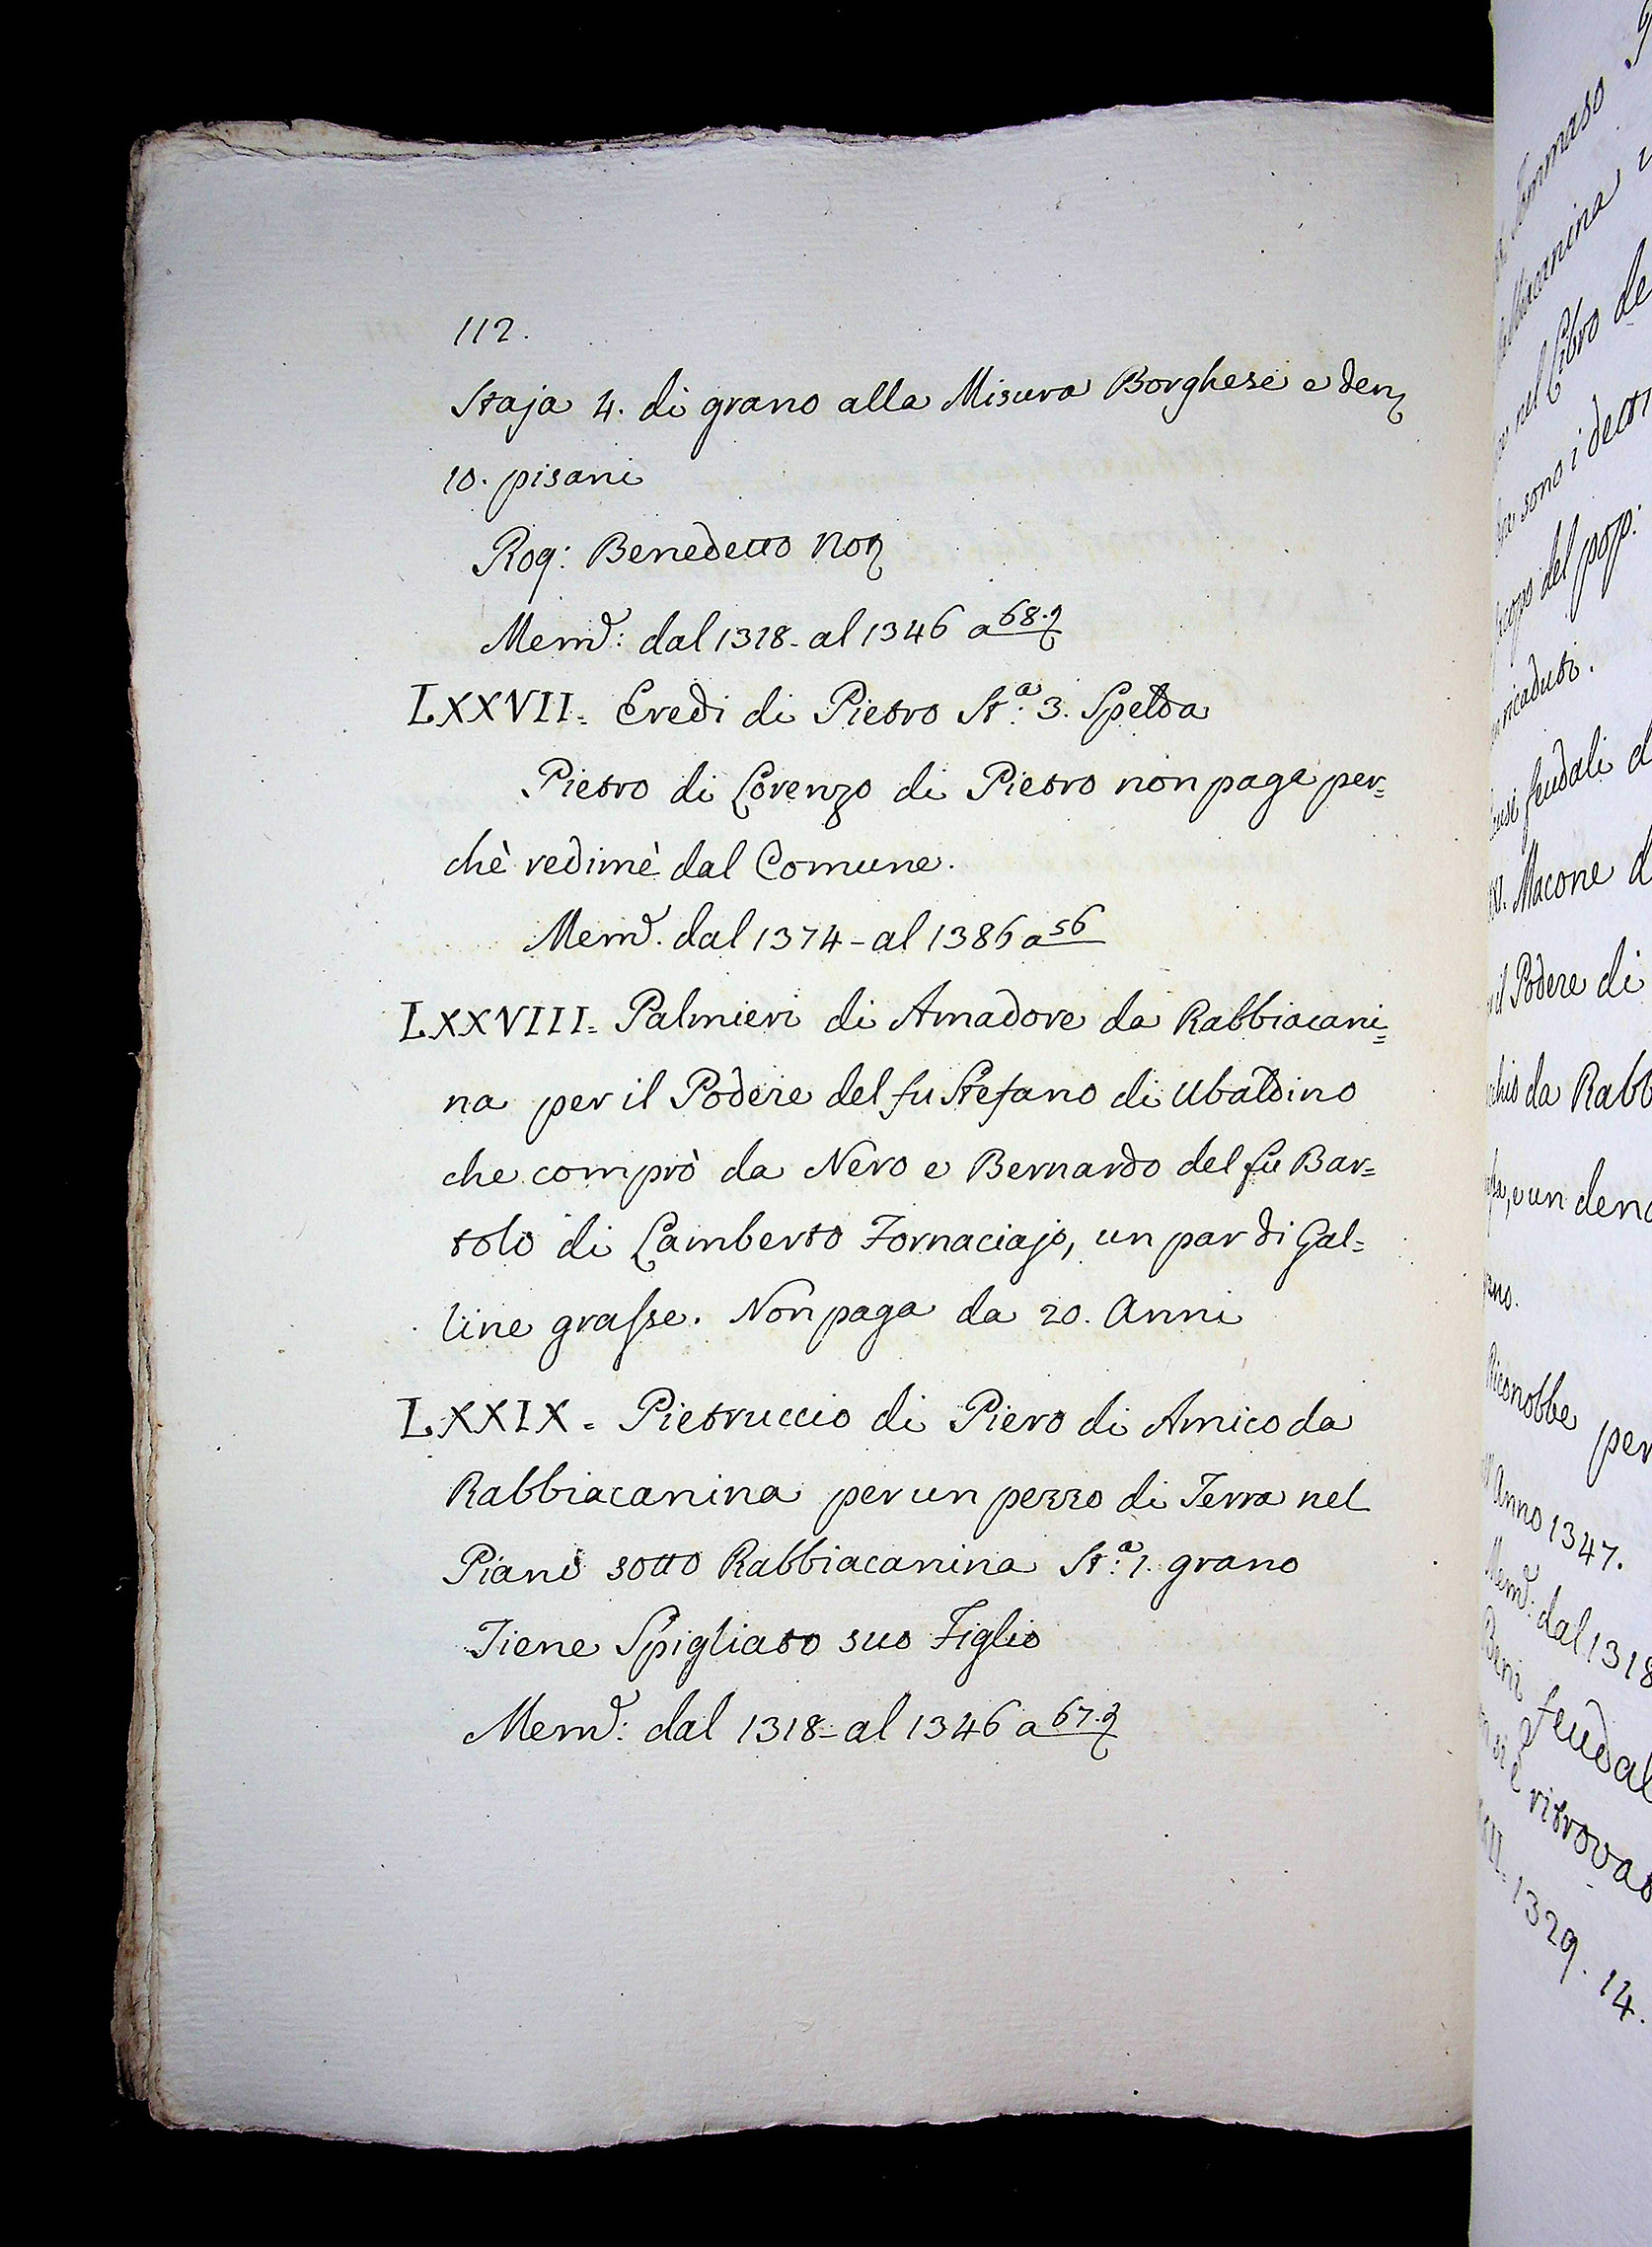 112.
Staja 4. di grano alla Misura Borghese e den
10. pisani
Rog: Benedetto Not
Memd: dal 1318- al 1346 a 68.
LXXVII= Eredi di Pietro St.a 3. Spelda
Pietro di Lorenzo di Pietro non paga per=
chè redimè dal Comune.
Memd. dal 1374- al 1386 a 56
LXXVIII= Palmieri di Amadore da Rabbiacani=
na per il Podere del fu Stefano di Ubaldino
che comprò da Nero e Bernardo del fu Bar=
tolo di Lamberto Fornaciajo, un par di Gal=
line grasse. Non paga da 20. Anni
LXXIX= Pietruccio di Piero di Amico da
Rabbiacanina per un pezzo di Terra nel
Piano sotto Rabbiacanina St.a 1. grano
Tiene Spigliato suo Figlio
Memd: dal 1318- al 1346 a 67.
Tommaso
nel Libro de
sono i detti
del pop:
ricaduti.
feudali d
Macone d
il Podere di
da Rabb
e un dena
Riconobbe per
Anno 1347.
Memd: dal 1318
Beni feudal
si è ritrovat
1329. 14.